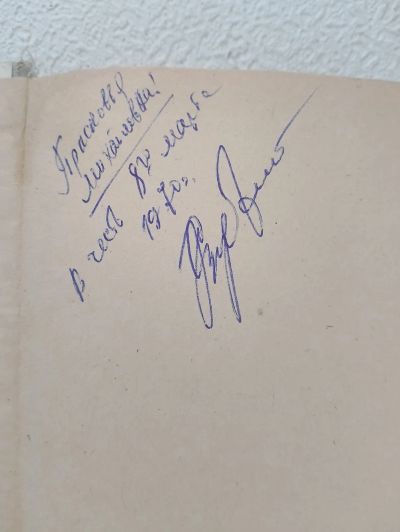 Прасковья
Михайловна!
В честь 8го марта
1970г.